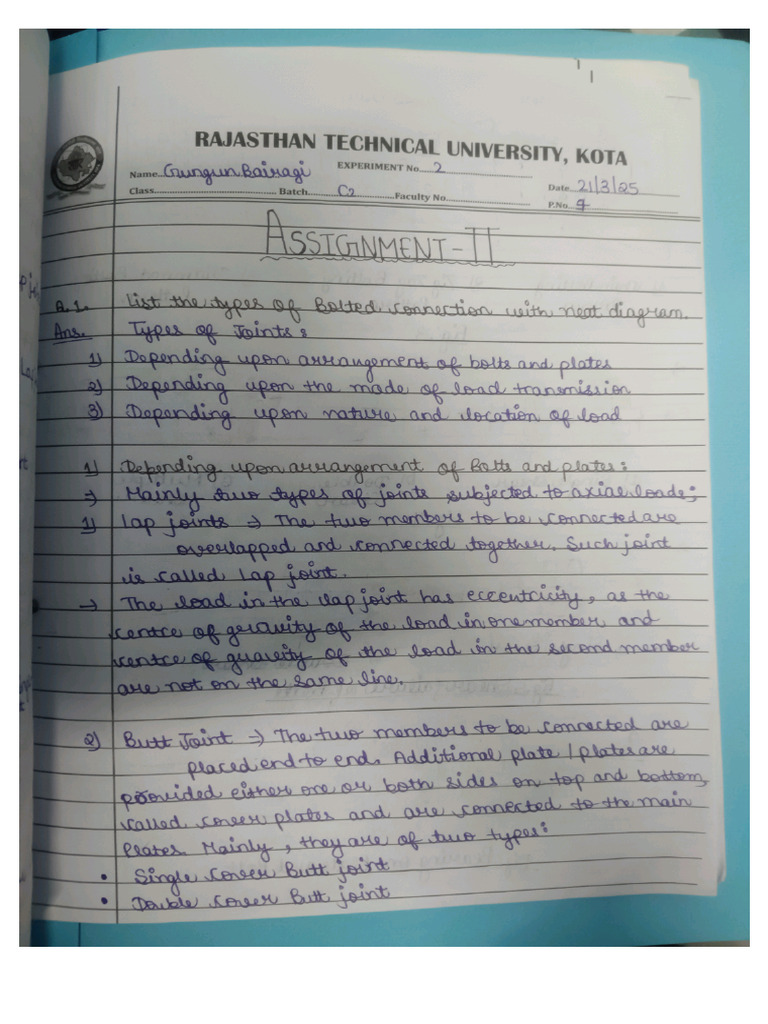 RAJASTHAN TECHNICAL UNIVERSITY, KOTA
Name Gungun Bairagi EXPERIMENT No. 2
Class Batch C2 Faculty No. Date 21/3/25
P.No. 9
ASSIGNMENT-II
Q.1. List the types of Bolted connection with neat diagram.
Ans. Types of Joints:
1) Depending upon arrangement of bolts and plates
2) Depending upon the mode of load transmission
3) Depending upon nature and location of load
1) Depending upon arrangement of Bolts and plates:
→ Mainly two types of joints subjected to axial loads;
1) Lap joints → The two members to be connected are
overlapped and connected together. Such joint
is called Lap joint.
→ The load in the lap joint has eccentricity, as the
centre of gravity of the load in one member and
centre of gravity of the load in the second member
are not on the same line.
2) Butt Joint → The two members to be connected are
placed end to end. Additional plate / plates are
provided either one or both sides on top and bottom,
called cover plates and are connected to the main
Plates. Mainly, they are of two types:
• Single cover Butt joint
• Double cover Butt joint